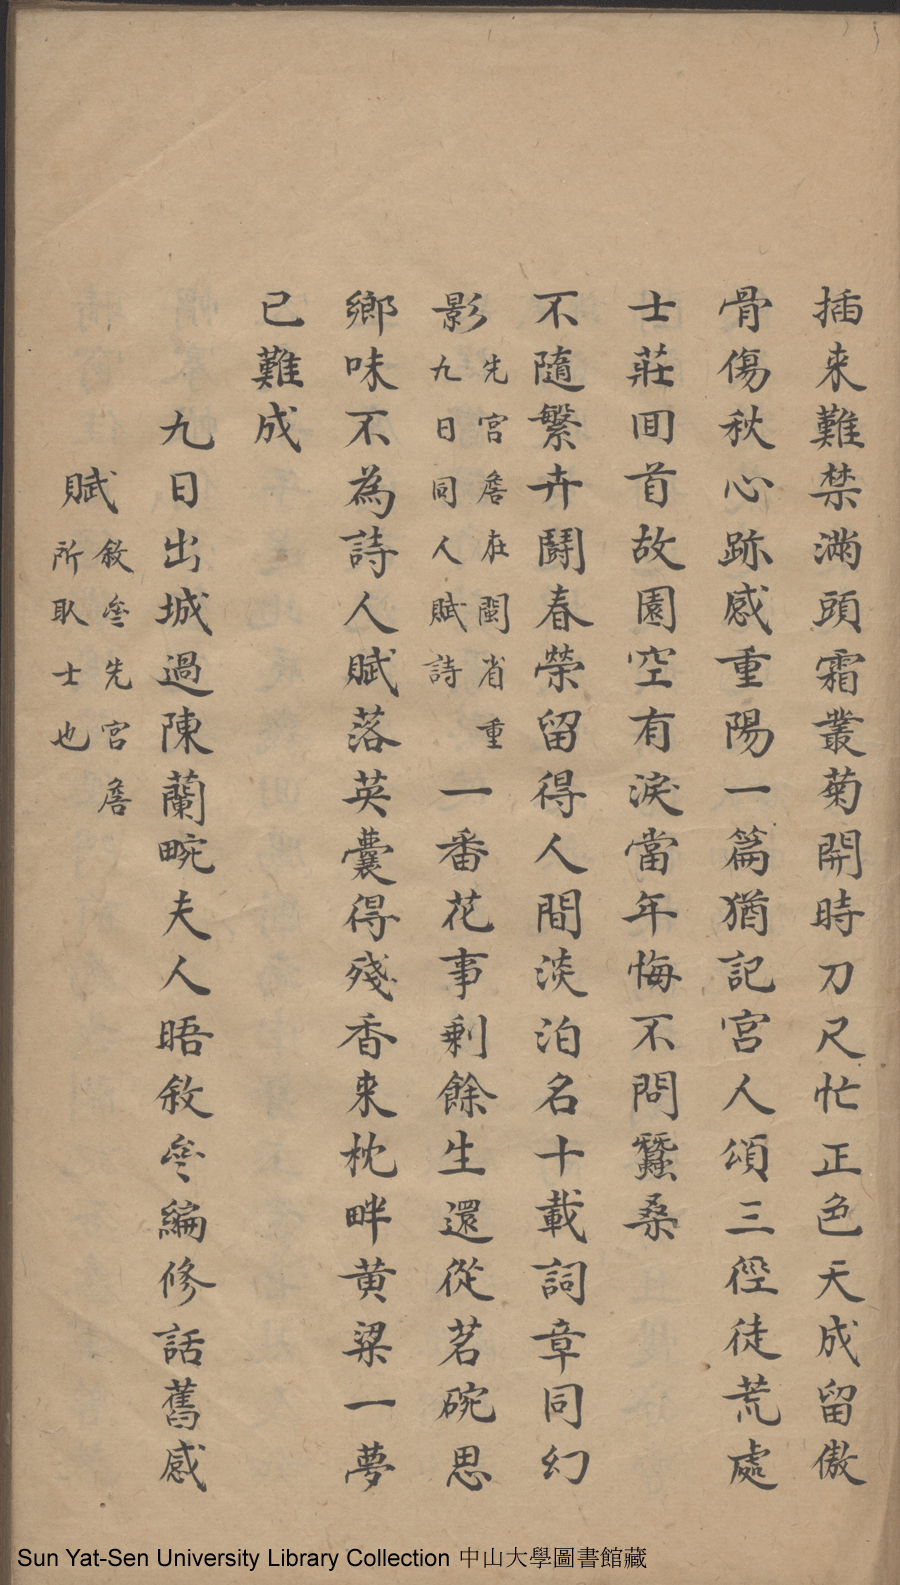 插来難禁滿頭霜叢菊開時刀尺忙正色天成留傲
骨傷秋心跡感重陽一篇猶記宮人頌三徑徒荒處
士莊囬首故園空有淚當年悔不問蠶桑
不隨繁卉鬪春榮留得人間淡泊名十載詞章同幻
影先宮詹在閩省重九日同人賦詩一番花事剩餘生還從茗碗思
鄉味不為詩人賦落英囊得殘香来枕畔黄粱一夢
已難成
九日出城過陳蘭畹夫人晤敘㕘編修話舊感
賦敘㕘先宮詹所取士也
Sun Yat-Sen University Library Collection 中山大學圖書館藏